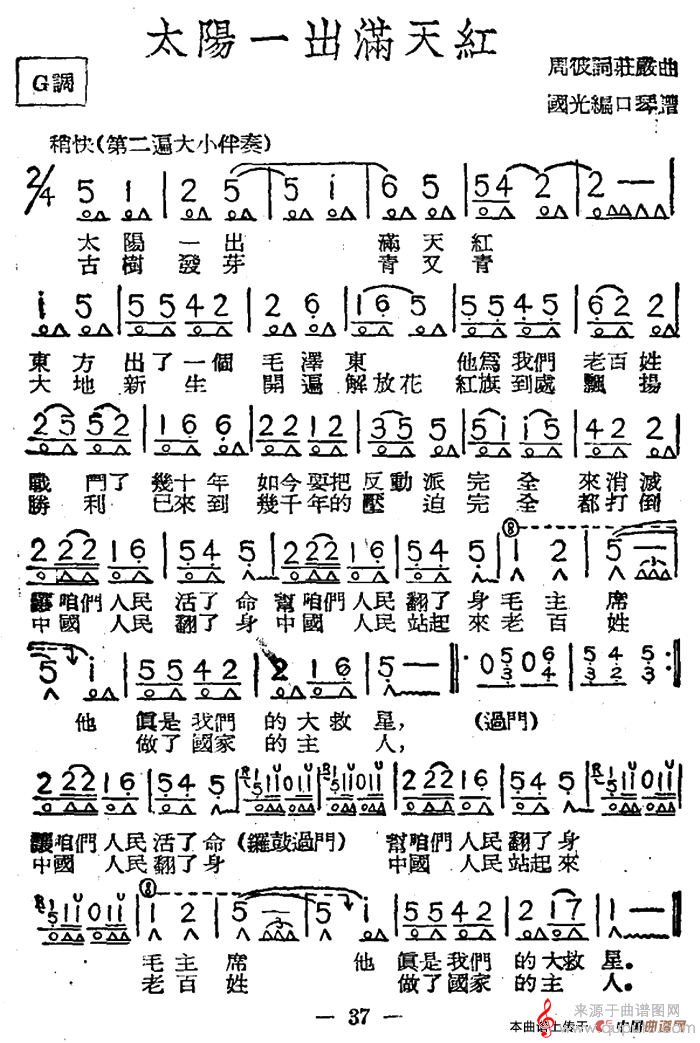 太陽一出滿天紅
G調
周彼詞莊嚴曲
國光編口琴譜
稍快(第二遍大小伴奏)
2/4 5 1 | 2 5 | 5 i | 6 5 | 54 2 | 2 —
太陽一出 滿天紅
古樹發芽 青又青
i 5 | 5542 | 2 6 | 16 5 | 5545 | 62 2
東方出了一個 毛澤東 他爲我們 老百姓
大地新生 開遍解放花 紅旗到處飄揚
25 52 | 16 6 | 22 12 | 35 5 | 5i i5 | 42 2
戰鬥了 幾十年 如今要把反動派完全來消滅
勝利 已來到 幾千年的壓迫完全都打倒
222 16 | 54 5 | 222 16 | 54 5 | 1 2 | 5 —
咱們人民活了命幫咱們人民翻了身毛主席
中國人民翻了身中國人民站起來老百姓
5 i | 5542 | 2 16 | 5 —
他眞是我們的大救星, (過門)
做了國家的主人,
222 16 | 54 5
讓咱們人民活了命(鑼鼓過門) 幫咱們人民翻了身
中國人民翻了身 中國人民站起來
1 2 | 5 — | 5 i | 5542 | 2 17 | 1 —
毛主席 他眞是我們的大救星.
老百姓 做了國家的主人.
— 37 —
来源于曲谱图网
本曲谱上传于 中国曲谱网